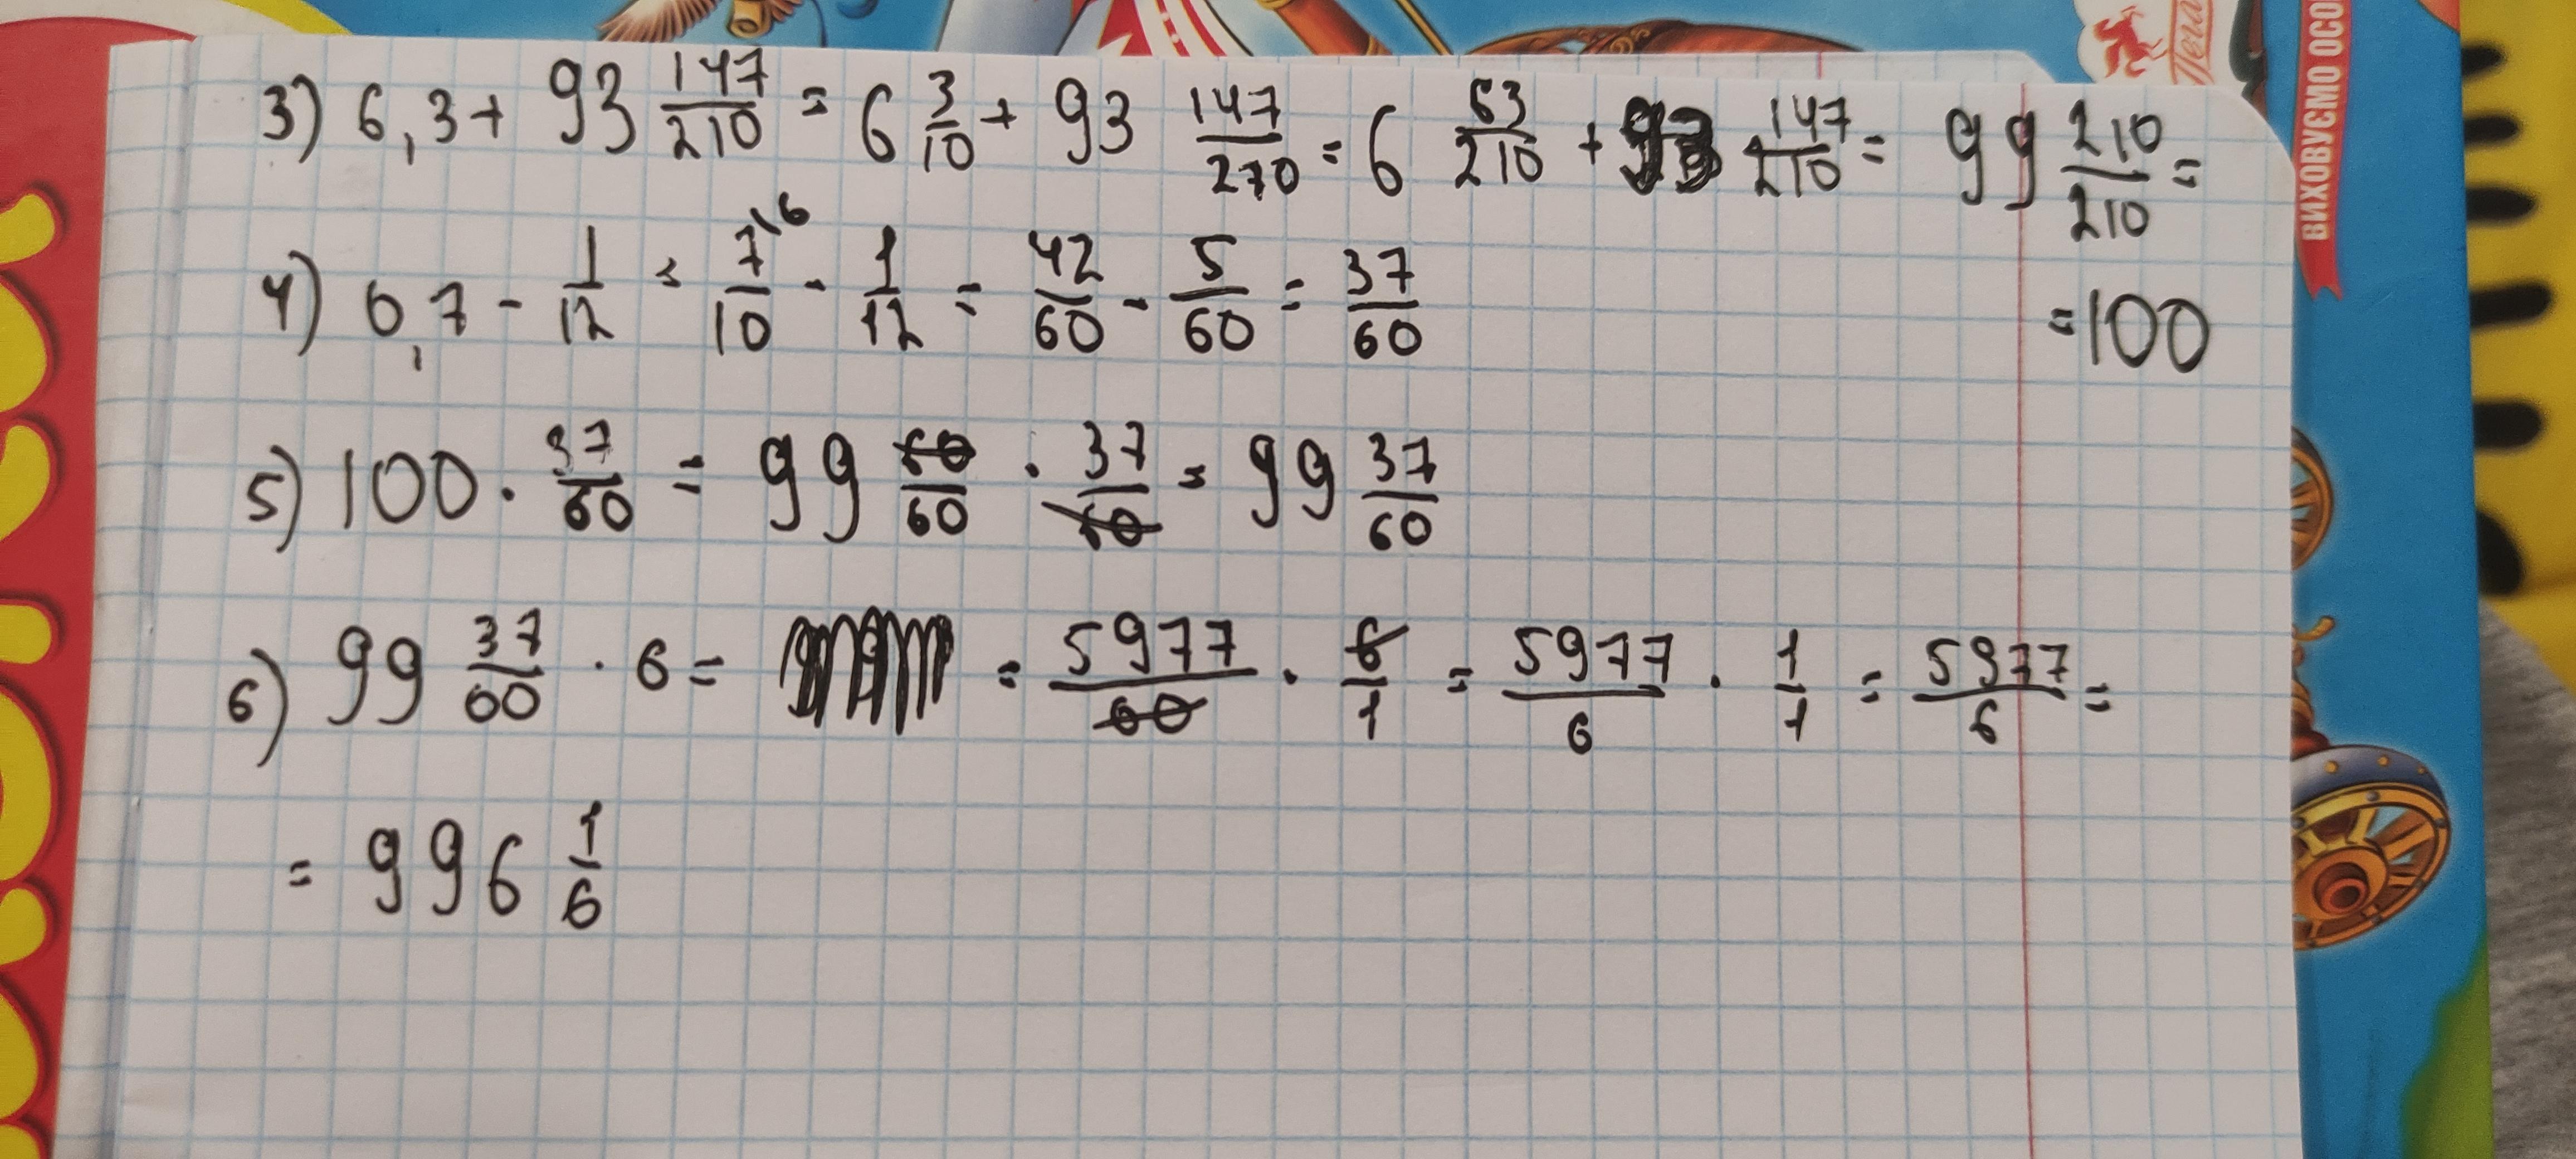 ВИХОВУЄМО ОСО
3) 6,3 + 93 147/210 = 6 3/10 + 93 147/210 = 6 63/210 + 93 147/210 = 99 210/210 =
= 100
4) 0,7 - 1/12 = 7\6/10 - 1/12 = 42/60 - 5/60 = 37/60
5) 100 · 37/60 = 99 60/60 · 37/60 = 99 37/60
6) 99 37/60 · 6 = = 5977/60 · 6/1 = 5977/6 · 1/1 = 5977/6 =
= 996 1/6